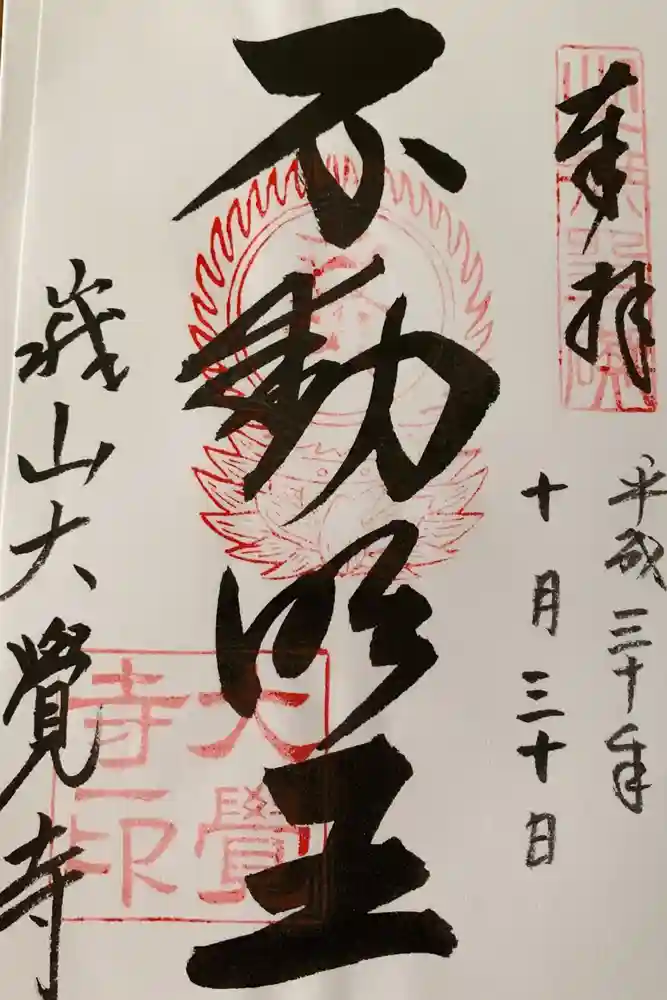 奉拝
平成三十年
十月三十日
不動明王
大覺
寺印
嵯山大覺寺